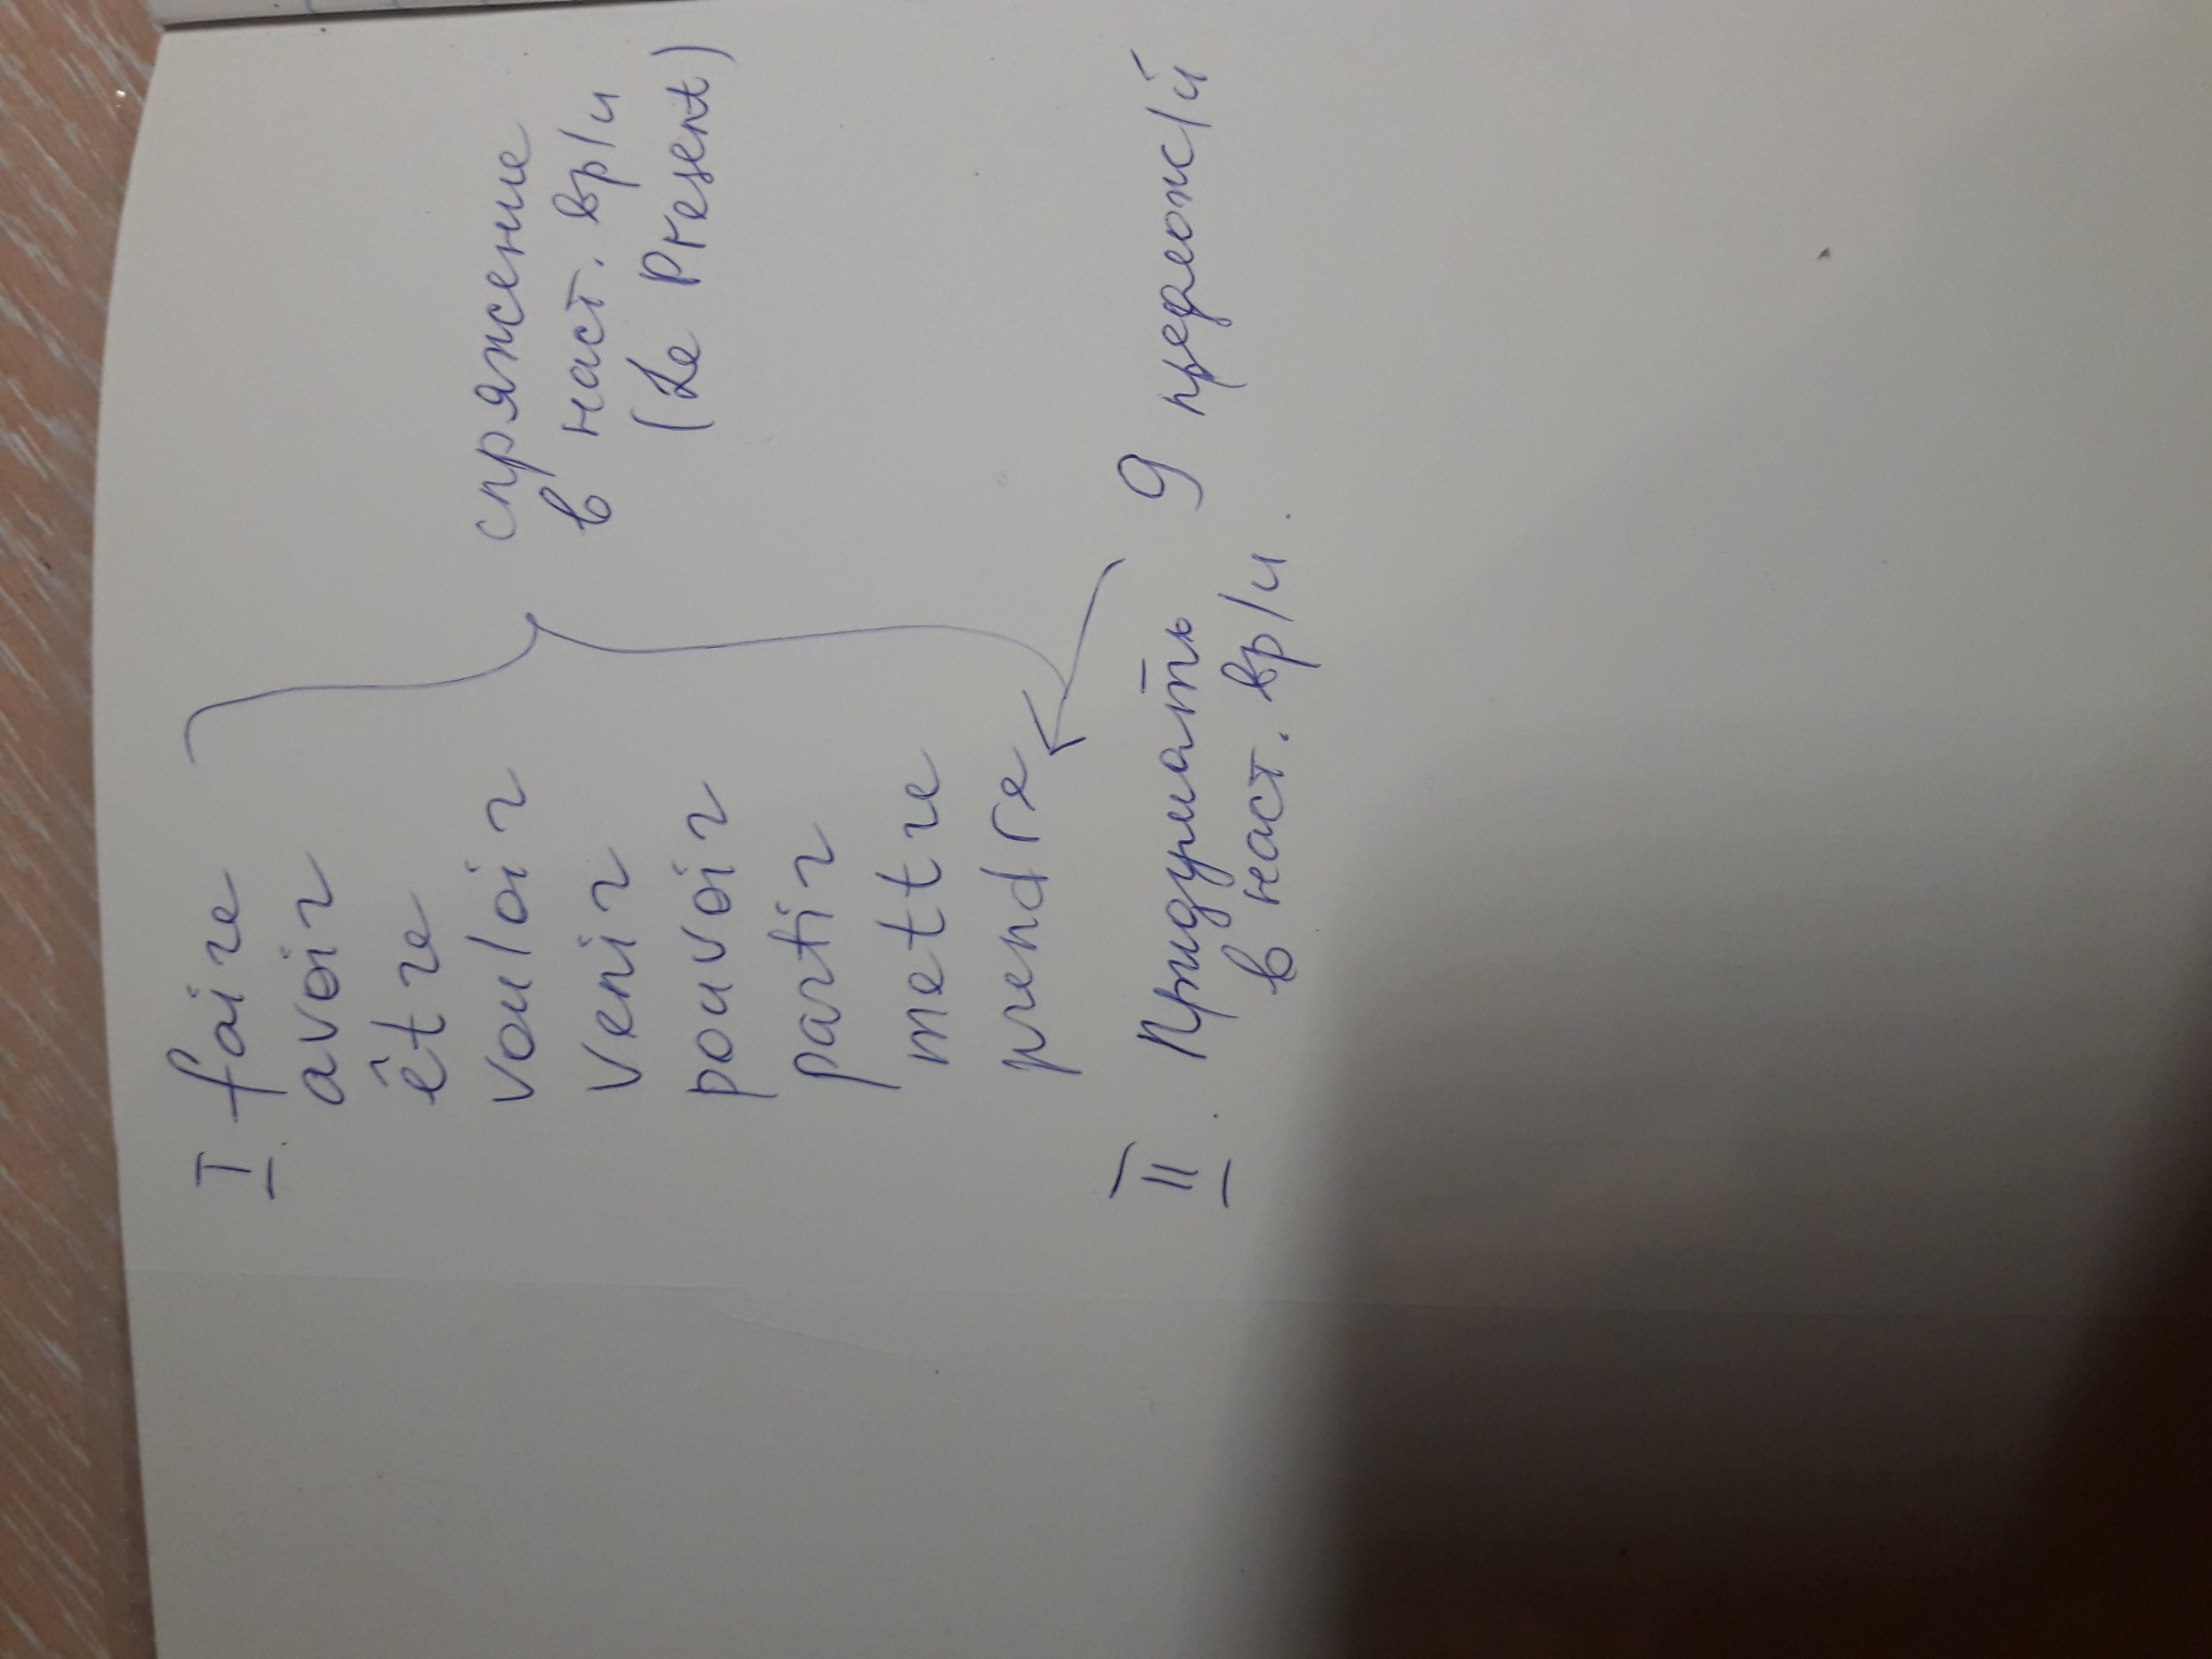 I. faire
avoir
être
vouloir
venir
pouvoir
partir
mettre
prendre
спряжение
в наст. вр/и
(Le Present)
II. Придумать 9 предлож/й
в наст. вр/и.